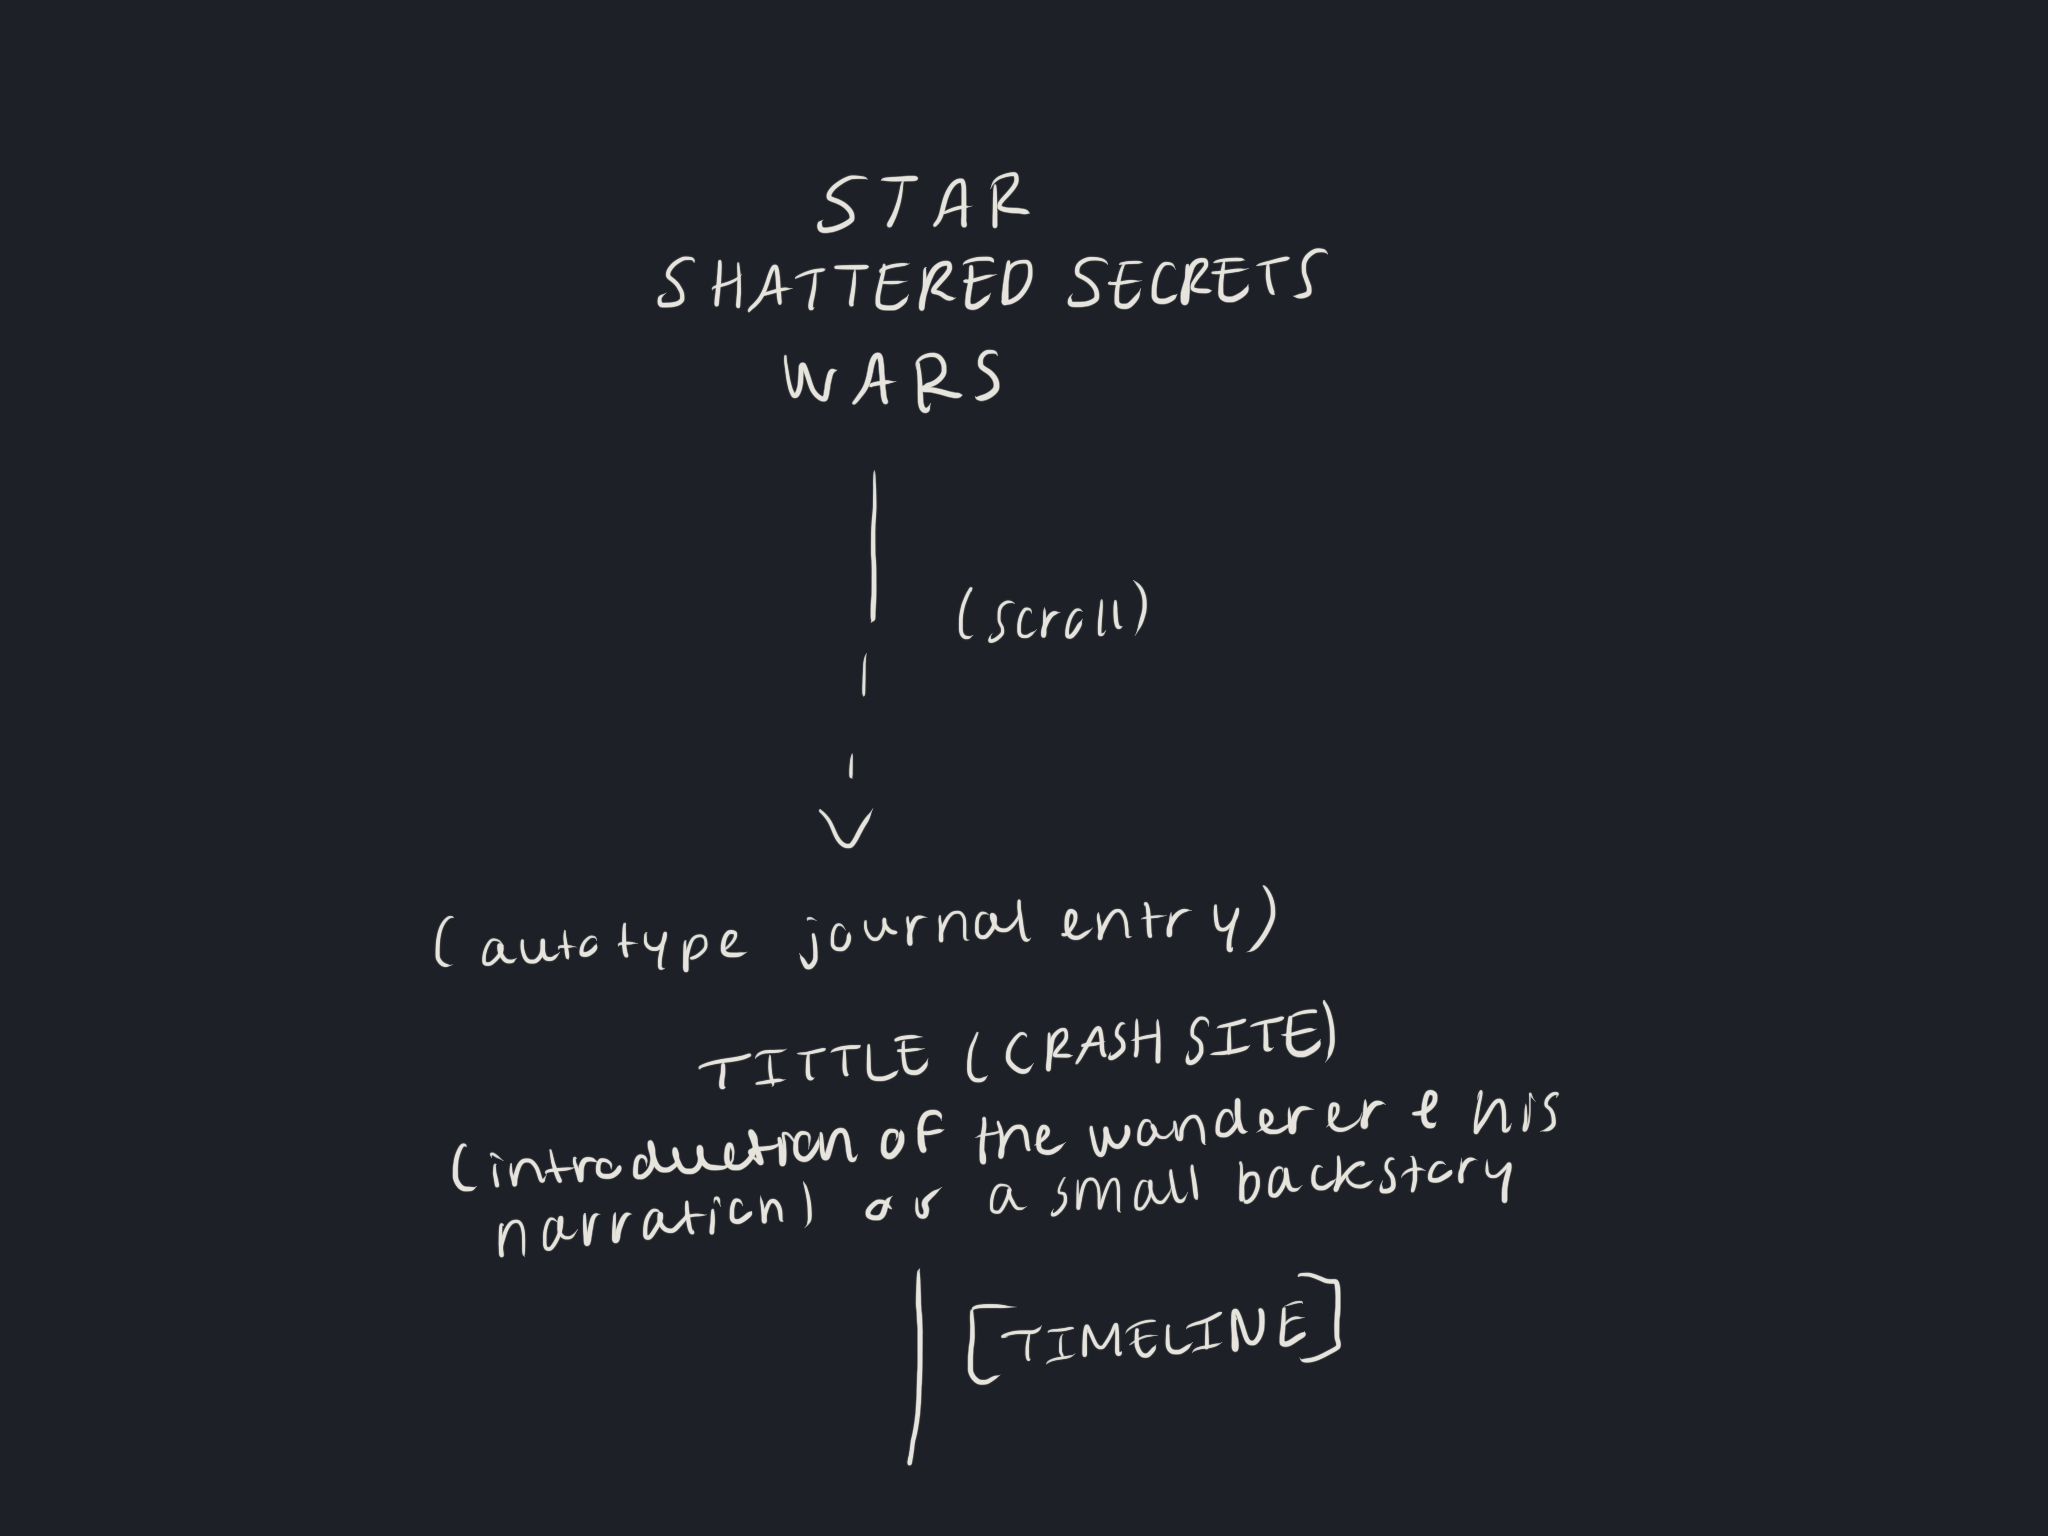 STAR
SHATTERED SECRETS
WARS
(scroll)
(autotype journal entry)
TITTLE (CRASH SITE)
(introduction of the wanderer & his
narration) or a small backstory
[TIMELINE]